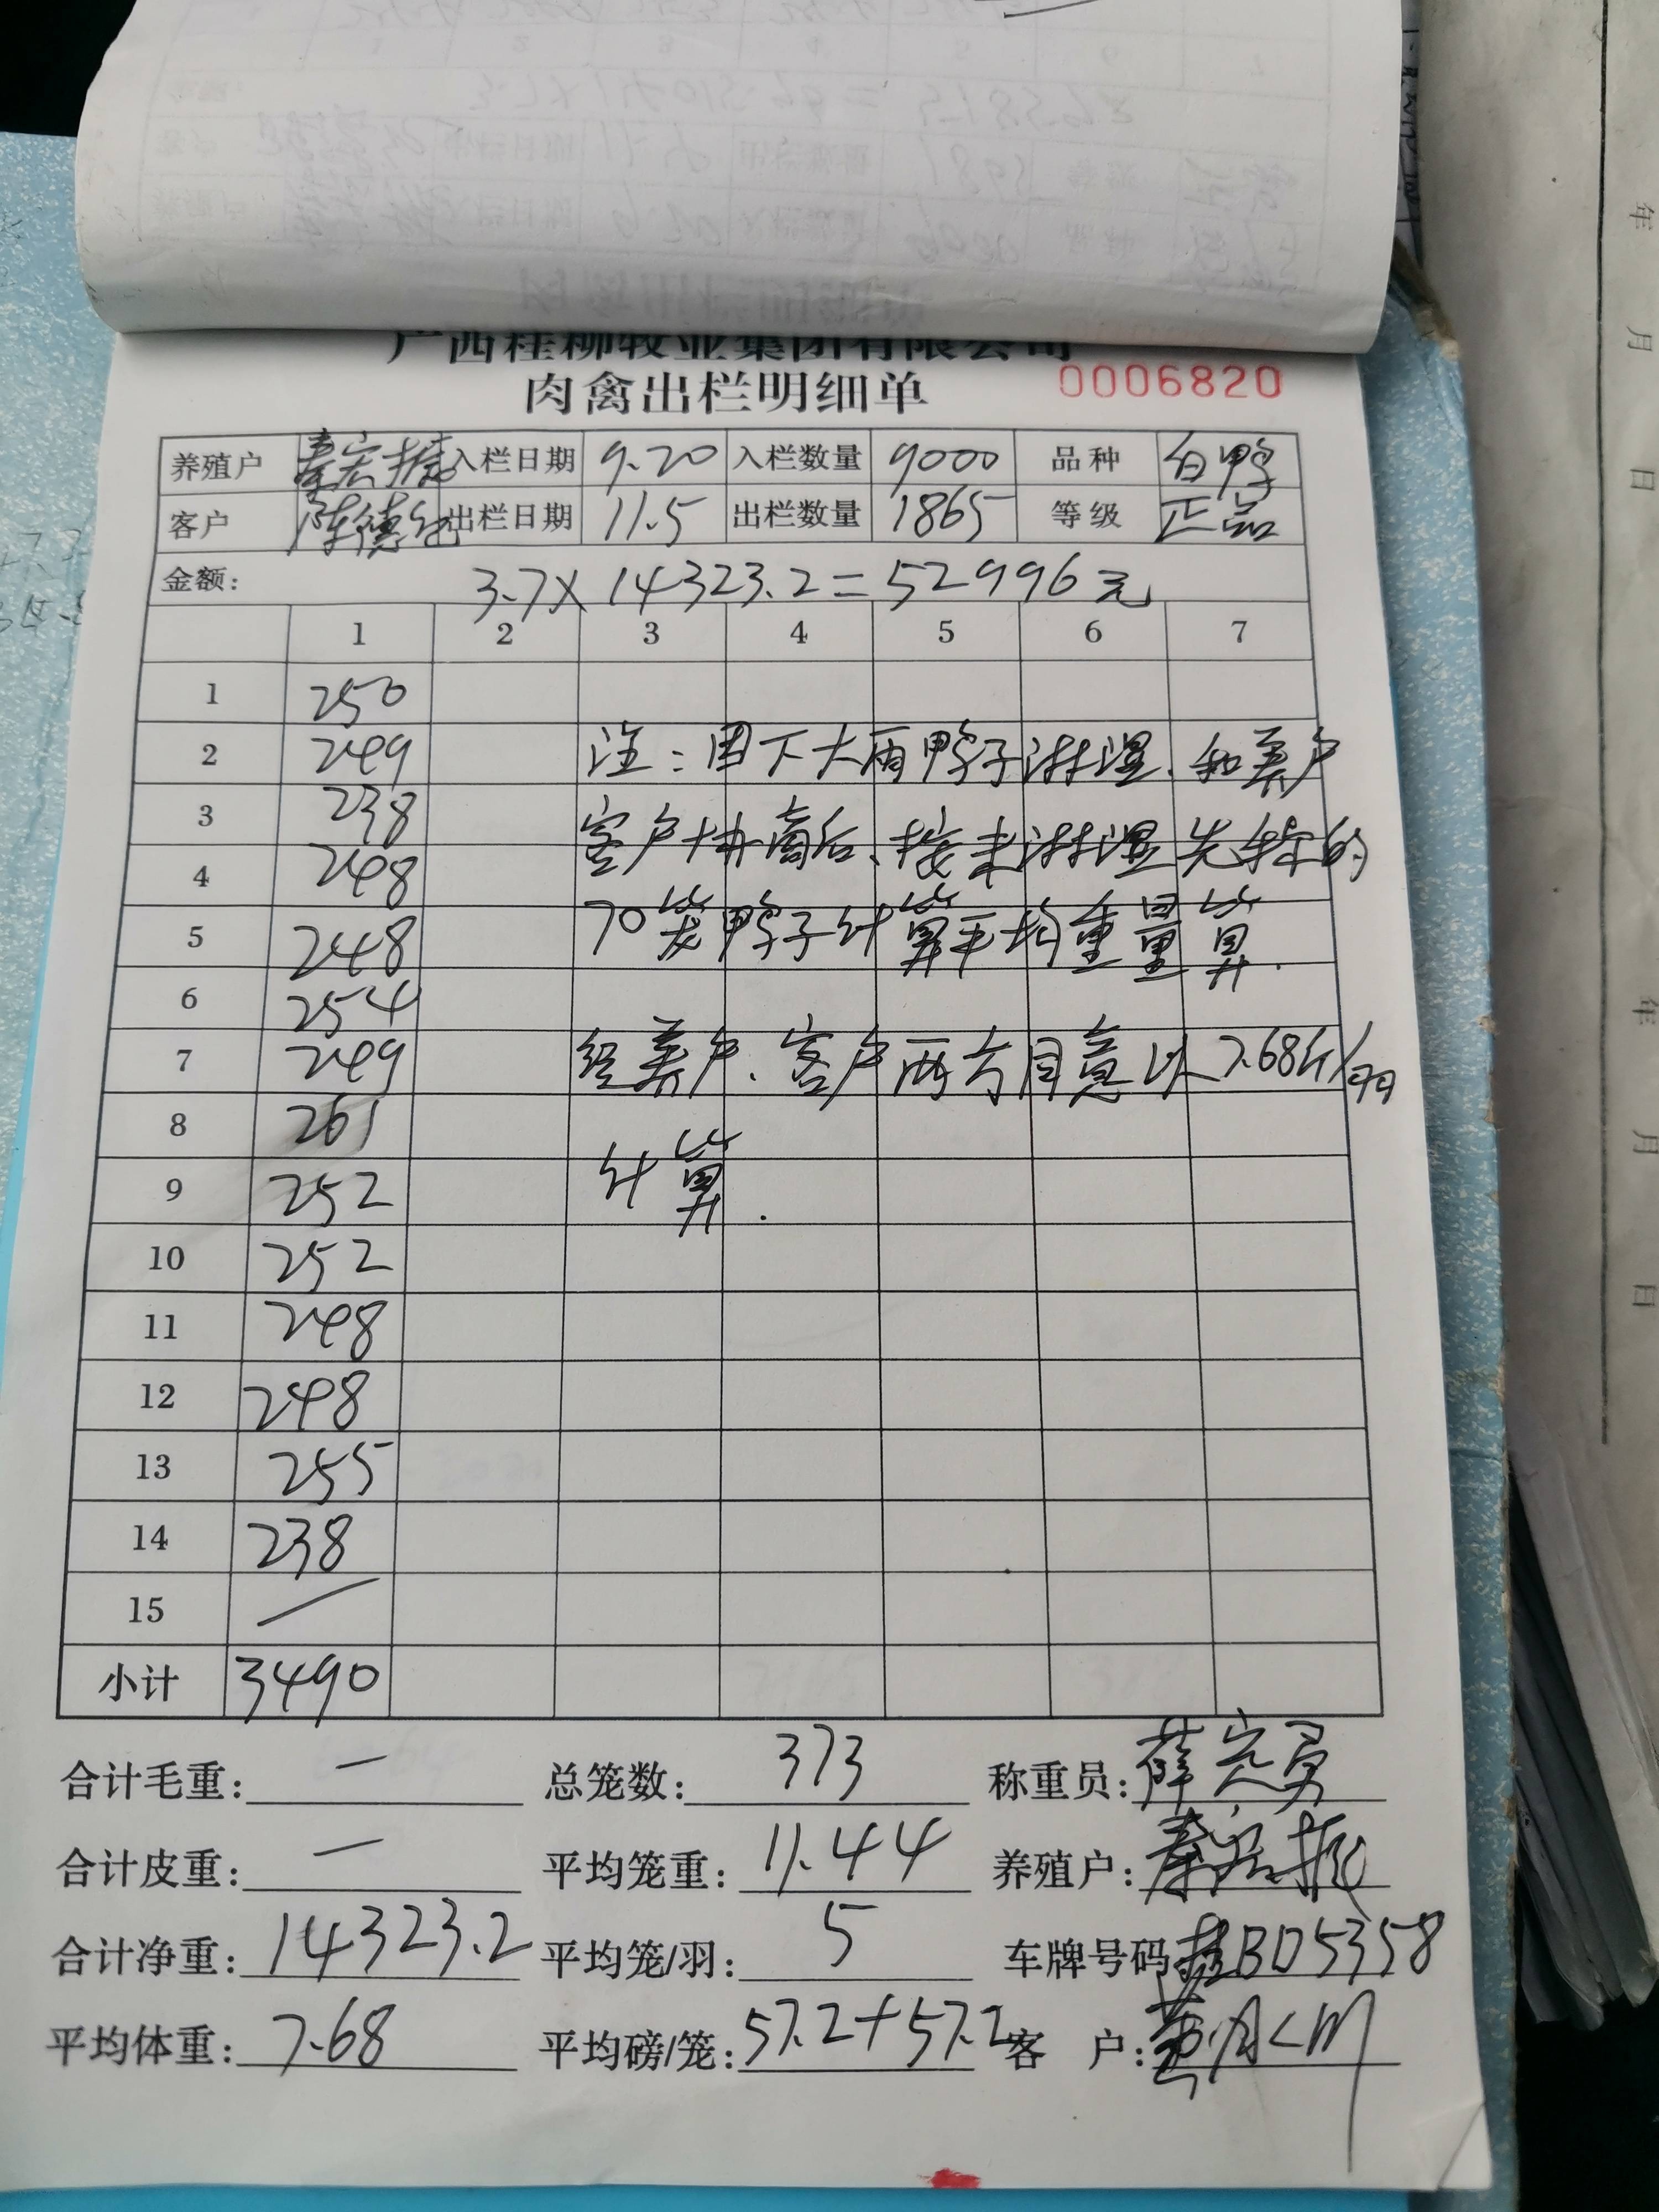 广西桂柳牧业集团有限公司
肉禽出栏明细单 0006820
养殖户 秦宏振 入栏日期 9.20 入栏数量 9000 品种 白鸭
客户 陈德 出栏日期 11.5 出栏数量 1865 等级 正品
金额: 3.7×14323.2=52996元
1 2 3 4 5 6 7
1 250
2 249 注:因下大雨鸭子淋湿、和养户
3 238 客户协商后、按未淋湿先称的
4 248
5 248 70笼鸭子计算平均重量算.
6 254
7 249 经养户、客户两方同意以7.68斤/羽
8 261
9 252 计算.
10 252
11 248
12 248
13 255
14 238
15 —
小计 3490
合计毛重: — 总笼数: 373 称重员: 薛
合计皮重: — 平均笼重: 11.44 养殖户: 秦宏振
合计净重: 14323.2 平均笼/羽: 5 车牌号码 桂BD5358
平均体重: 7.68 平均磅/笼: 57.2+57.2 客 户:
年 月 日
年 月 日